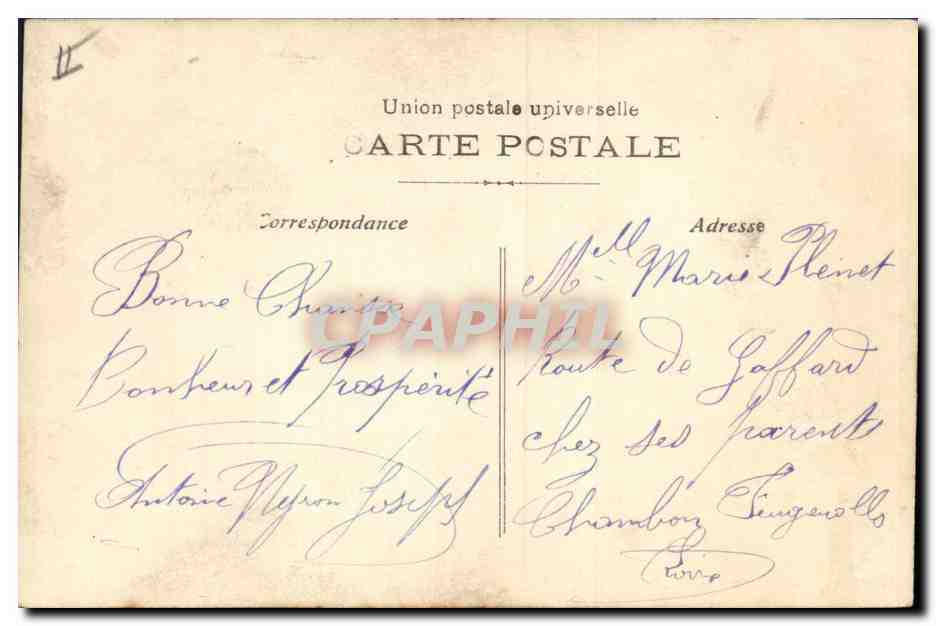 II
Union postale universelle
CARTE POSTALE
Correspondance
Adresse
Bonne Chance
Bonheur et Prospérité
Antoine Neyron Joseph
Mlle Marie Plénet
Route de Gaffard
chez ses parents
Chambon Feugerolles
Loire
CPAPHIL